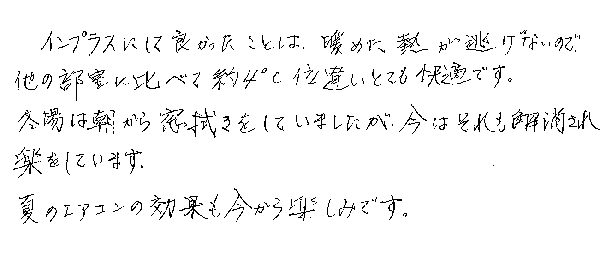 インプラスにして良かったことは、暖めた熱が逃げないので
他の部屋に比べて約4℃位違いとても快適です。
冬場は朝から窓拭きをしていましたが、今はそれも解消され
楽をしています。
夏のエアコンの効果も今から楽しみです。